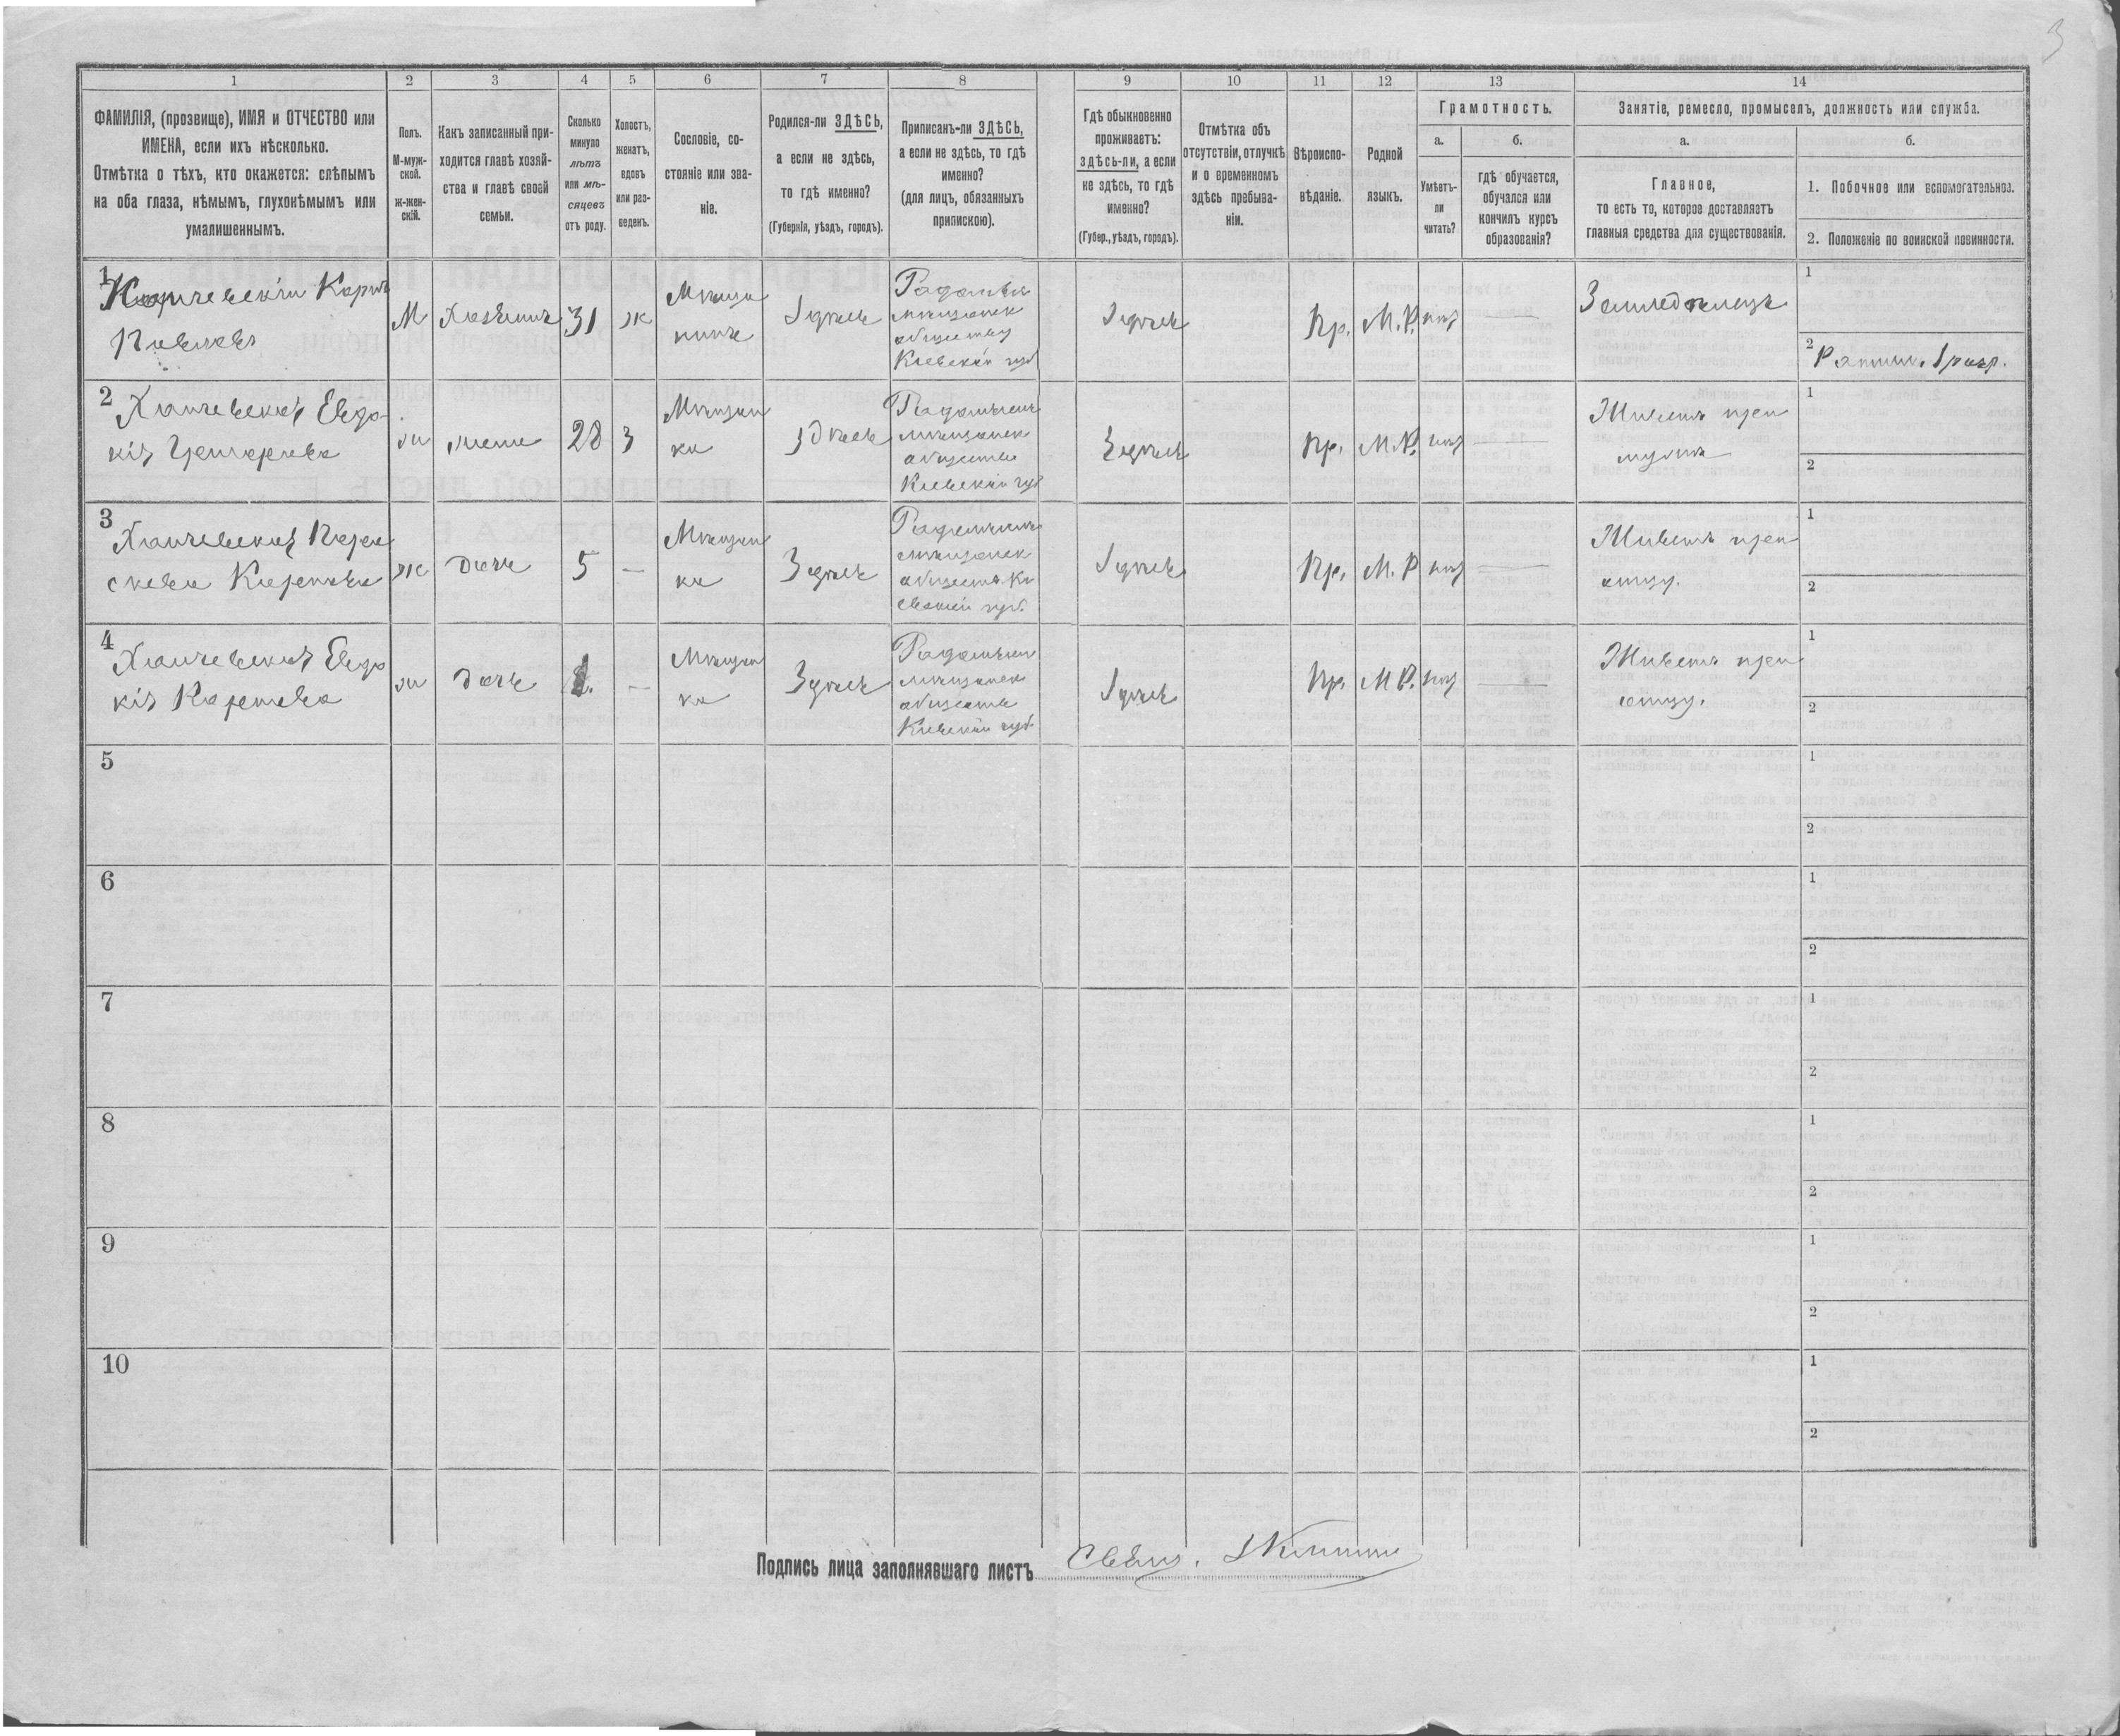 3
1 2 3 4 5 6 7 8 9 10 11 12 13 14
ФАМИЛІЯ, (прозвище), ИМЯ и ОТЧЕСТВО или
ИМЕНА, если ихъ нѣсколько.
Отмѣтка о тѣхъ, кто окажется: слѣпымъ
на оба глаза, нѣмымъ, глухонѣмымъ или
умалишеннымъ.
Полъ.
М-муж-
ской.
ж-жен-
скій.
Какъ записанный при-
ходится главѣ хозяй-
ства и главѣ своей
семьи.
Сколько
минуло
лѣтъ
или мѣ-
сяцевъ
отъ роду.
Холостъ,
женатъ,
вдовъ
или раз-
веденъ.
Сословіе, со-
стояніе или зва-
ніе.
Родился-ли ЗДѢСЬ,
а если не здѣсь,
то гдѣ именно?
(Губернія, уѣздъ, городъ).
Приписанъ-ли ЗДѢСЬ,
а если не здѣсь, то гдѣ
именно?
(для лицъ, обязанныхъ
припискою).
Гдѣ обыкновенно
проживаетъ:
здѣсь-ли, а если
не здѣсь, то гдѣ
именно?
(Губер., уѣздъ, городъ).
Отмѣтка объ
отсутствіи, отлучкѣ
и о временномъ
здѣсь пребыва-
ніи.
Вѣроиспо-
вѣданіе.
Родной
языкъ.
Грамотность.
а.
Умѣетъ-
ли
читать?
б.
гдѣ обучается,
обучался или
кончилъ курсъ
образованія?
Занятіе, ремесло, промыселъ, должность или служба.
а.
Главное,
то есть то, которое доставляетъ
главныя средства для существованія.
б.
1. Побочное или вспомогательное.
2. Положеніе по воинской повинности.
1
М
Хозяинъ
31
ж
Мѣща
нинъ
Здѣсь
Радомысл
мѣщанск
общества
Кіевской губ
Здѣсь
Пр.
М.Р.
нѣт
Земледѣлецъ
1
2 Ратник. 1 разр.
2 Ханчевская Евдо
кія Григорьева
ж
жена
28
З
Мѣщан
ка
Здѣсь
мѣщанск
общества
Кіевской губ
Здѣсь
Пр.
М.Р.
нѣт
Живетъ при
мужѣ
1
2
3 Ханчевская Пара
скева Карпова
ж
дочь
5
—
Мѣщан
ка
Здѣсь
мѣщанск
обществ. Кі
евской губ.
Здѣсь
Пр.
М.Р
нѣт
Живетъ при
отцу.
1
2
4 Ханчевская Евдо
кія Карпова
ж
дочь
1.
—
Мѣщан
ка
Здѣсь
мѣщанск
общества
Кіевской губ.
Здѣсь
Пр.
М Р.
нѣт
Живетъ при
отцу.
1
2
5
1
2
6
1
2
7
1
2
8
1
2
9
1
2
10
1
2
Подпись лица заполнявшаго листъ